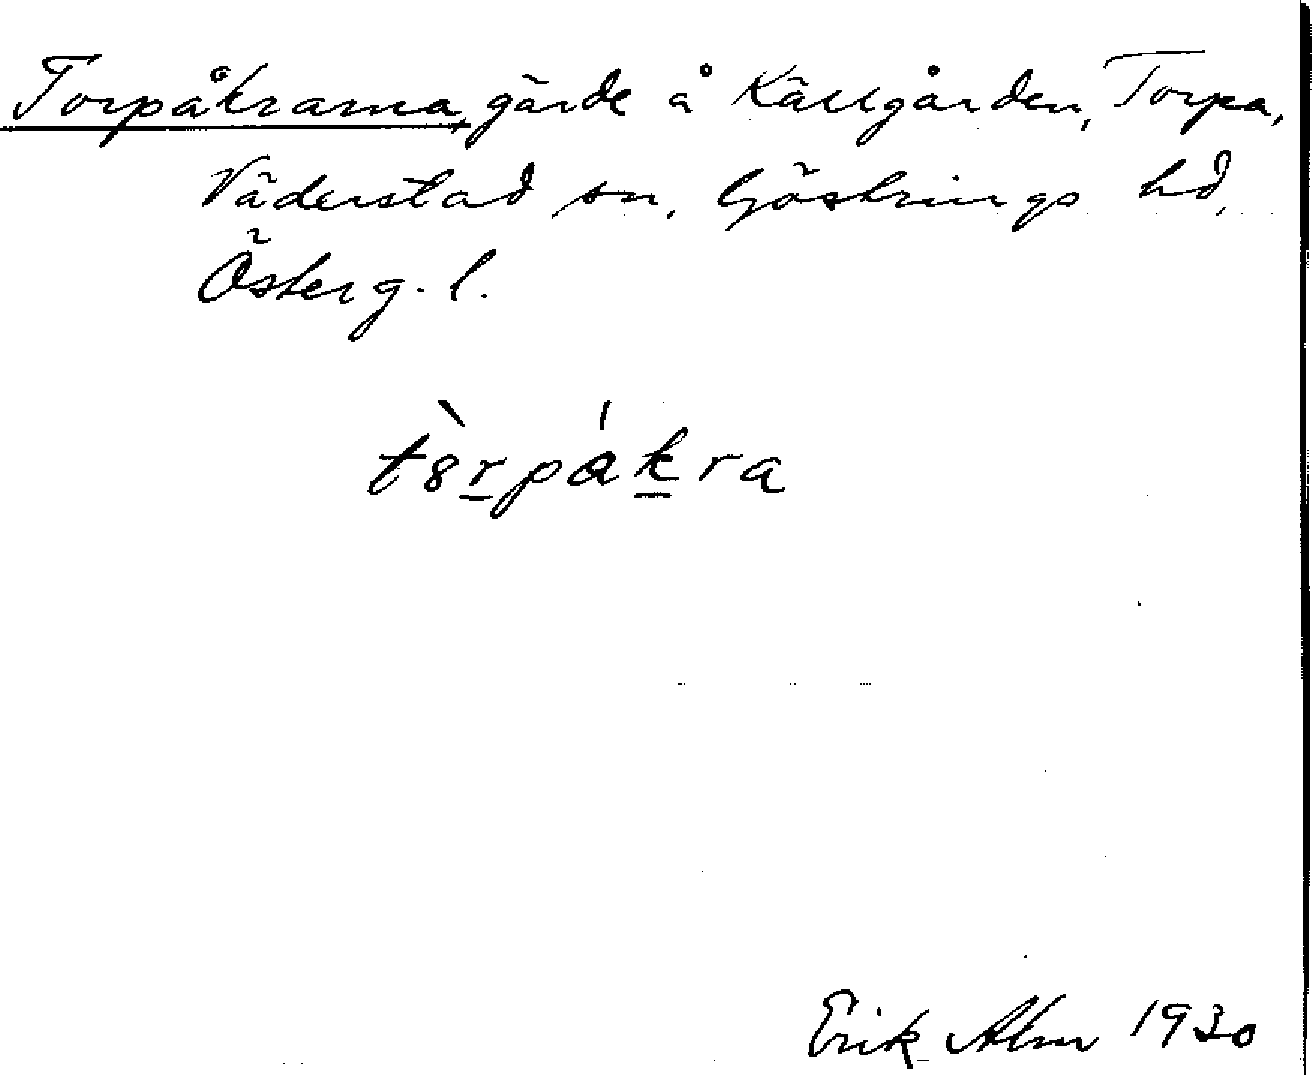 Torpåkrarna, gärde å Källgården, Torpa,
Väderstad sn, Göstrings hd,
Österg. l.
tȣ̀rpákra
Erik Alm 1930